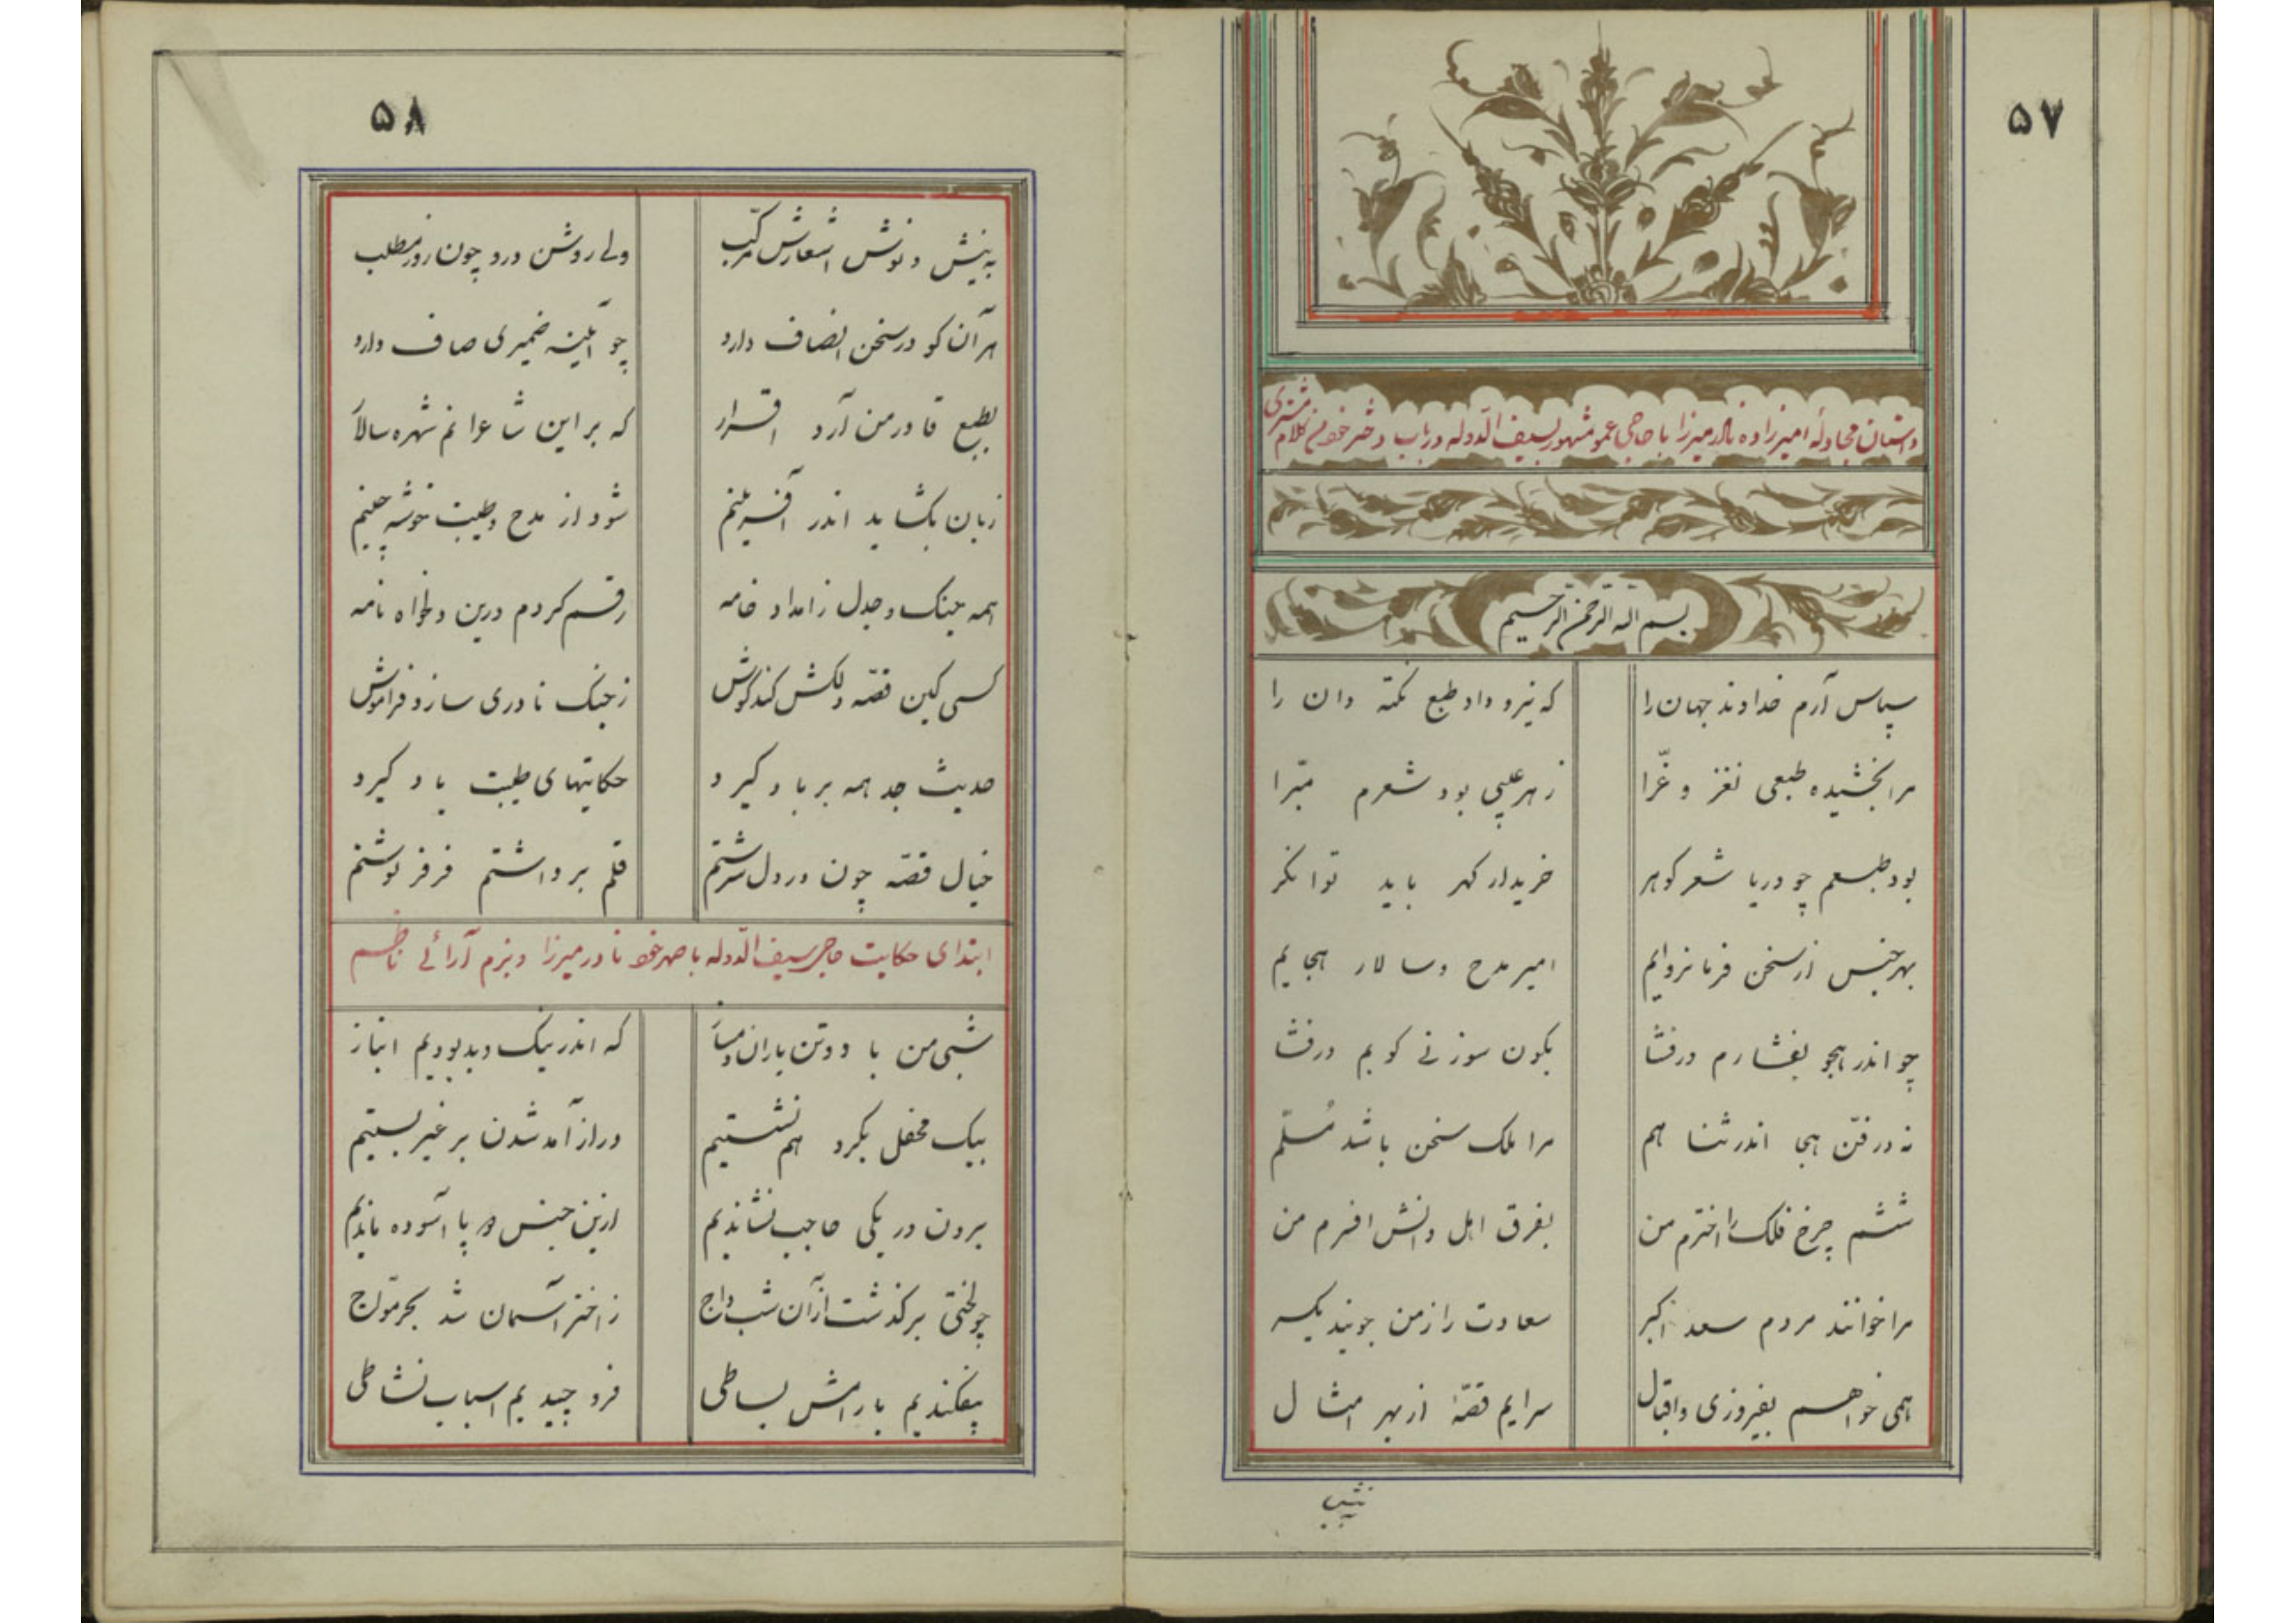 ۵۷
داستان مجادلهٔ امیرزاده نادر میرزا با حاجی عمو مشهور بسیف الدوله در باب دختر خود من کلام مشتری
بسم الله الرحمن الرحیم
سپاس آرم خداوند جهان را که نیرو داد طبع نکته دان را
مرا بخشیده طبعی نغز و غرّا ز هر عیبی بود شعرم مبّرا
بود طبعم چو دریا شعر گوهر خریدار گهر باید توانگر
بهر جنس از سخن فرمانروایم امیر مدح و سالار هجایم
چو اندر هجو بفشارم درفشا بکون سوزنی کوبم درفشا
نه در فنّ هجا اندر ثنا هم مرا ملک سخن باشد مُسلّم
ششم چرخ فلک را اخترم من بفرق اهل دانش افسرم من
مرا خوانند مردم سعد اکبر سعادت را ز من جویند یکسر
همی خواهم بفیروزی و اقبال سرایم قصّهٔ از بهر امثال
۵۸
به نیش و نوش اشعارش مرکّب ولی روشن درو چون روز مطلب
هر آن کو در سخن انصاف دارد چو آئینه ضمیری صاف دارد
بطبع قادر من آرد اقرار که بر این شاعرانم شهره سالار
زبان بگشاید اندر آفرینم شود از مدح و طیبت خوشه چینم
همه نیک و جدل ز امداد خامه رقم کردم درین دلخواه نامه
کسی کین قصّه دلکش کند گوش ز جنگ نادری سازد فراموش
حدیث جد همه بر باد گیرد حکایتهای طیبت یاد گیرد
خیال قصّه چون در دل سرشتم قلم برداشتم فرفر نوشتم
ابتدای حکایت حاجی سیف الدوله با صهر خود نادر میرزا و بزم آرائی ناظم
شبی من با دو تن یاران دمساز که اندر نیک و بد بودیم انباز
بیک محفل بگرد هم نشستیم در از آمد شدن بر غیر بستیم
برون در یکی حاجب نشاندیم ازین جنس دو پا آسوده ماندیم
چو لختی برگذشت از آن شب داج ز اختر آسمان شد بحر موّاج
بیفکندیم با رامش بساطی فرو چیدیم اسباب نشاطی